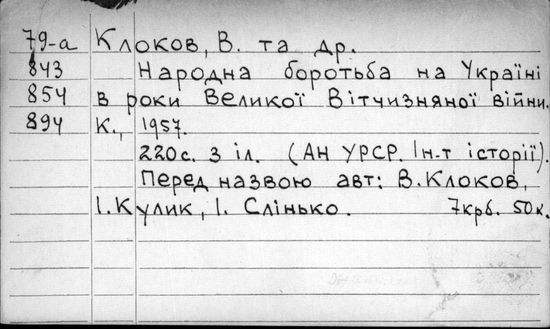 79-а Клоков, В. та др.
843 Народна боротьба на Україні
854 в роки Великої Вітчизняної війни.
894 К., 1957.
220с. З іл. (АН УРСР. Ін-т історії).
Перед назвою авт: В.Клоков,
І.Кулик, І. Слінько. 7крб. 50к.